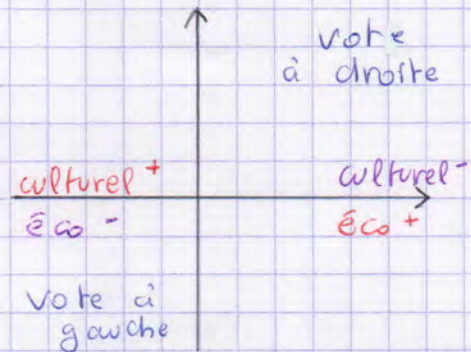 vote
à droite
culturel +
culturel -
éco -
éco +
vote à
gauche